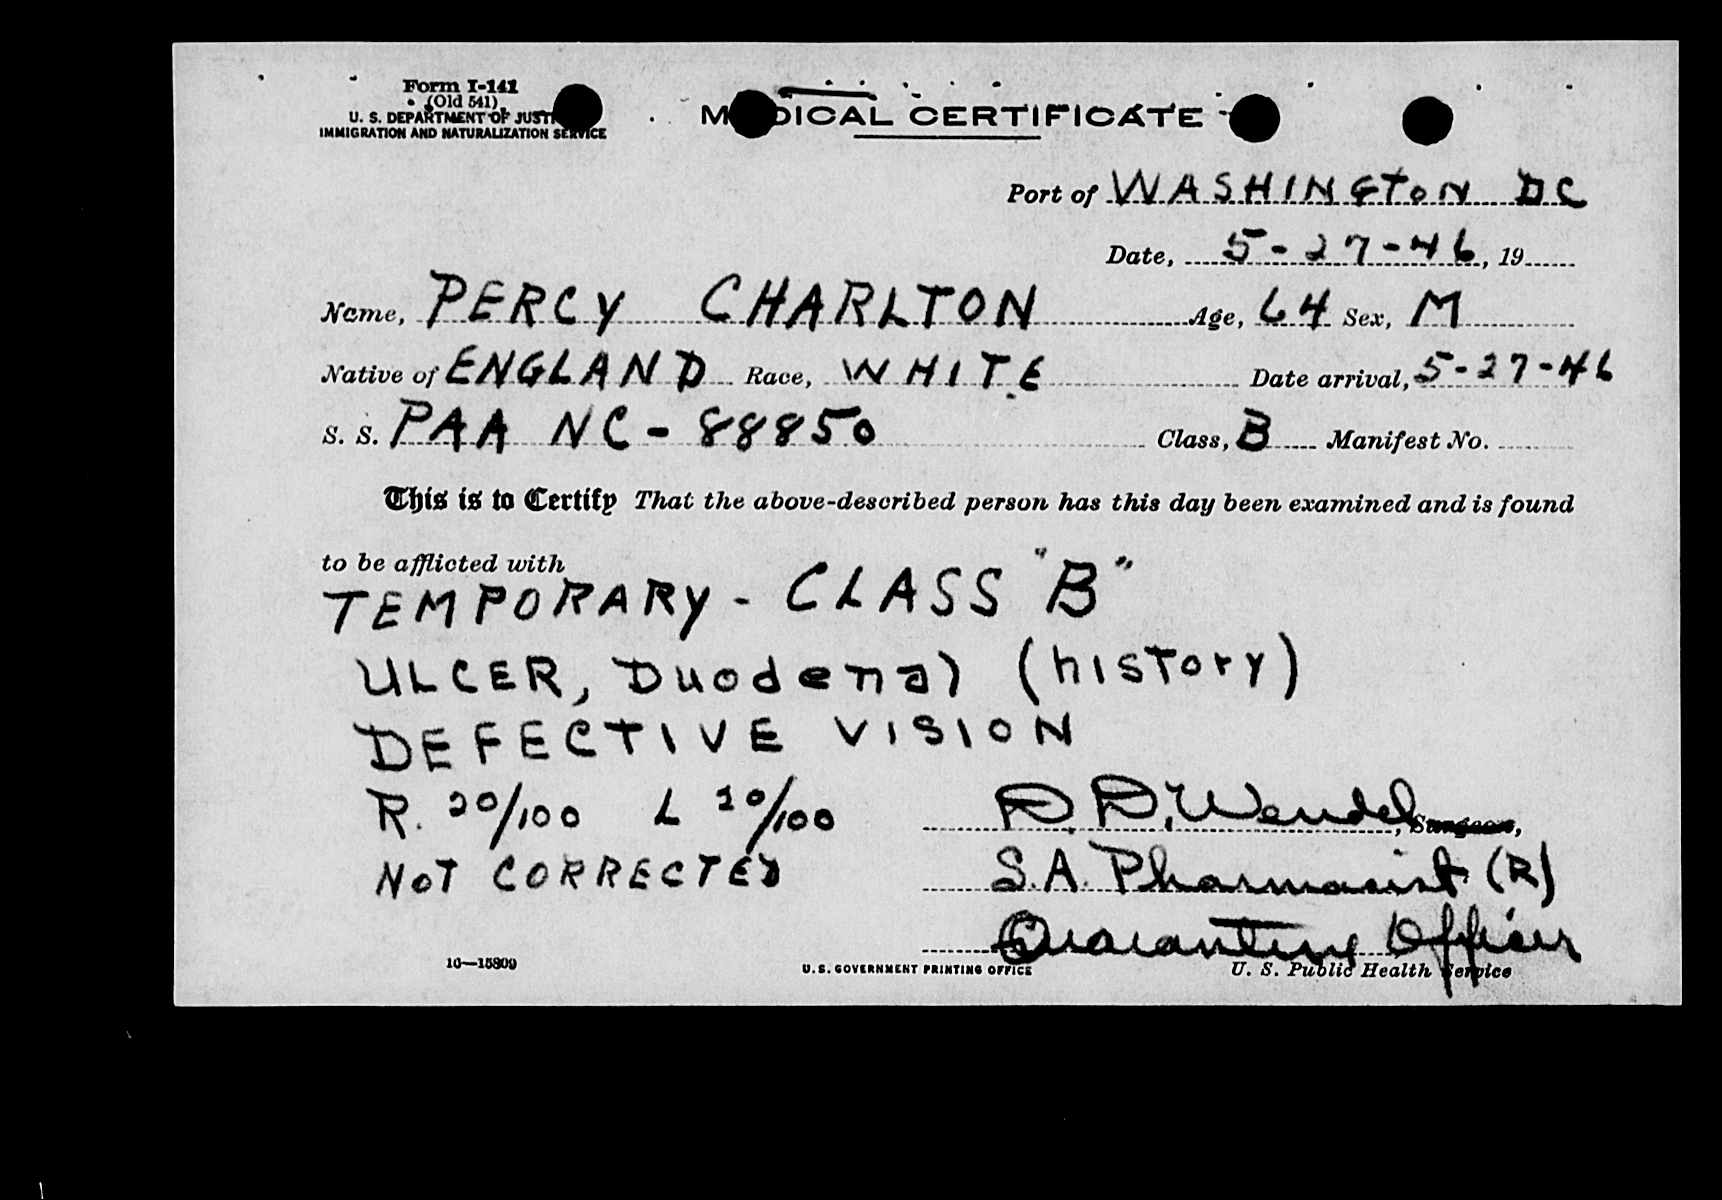 Form I-141
(Old 541)
U. S. DEPARTMENT OF JUSTICE
IMMIGRATION AND NATURALIZATION SERVICE
MEDICAL CERTIFICATE
Port of WASHINGTON DC
Date, 5-27-46, 19
Name, PERCY CHARLTON Age, 64 Sex, M
Native of ENGLAND Race, WHITE Date arrival, 5-27-46
S. S. PAA NC-88850 Class, B Manifest No.
This is to Certify That the above-described person has this day been examined and is found
to be afflicted with
TEMPORARY - CLASS "B"
ULCER, Duodenal (history)
DEFECTIVE VISION
R. 20/100 L 20/100
NOT CORRECTED
R. R. Wendel, Surgeon,
S.A. Pharmacist (R)
Quarantine Officer
U. S. Public Health Service
16—15809 U. S. GOVERNMENT PRINTING OFFICE